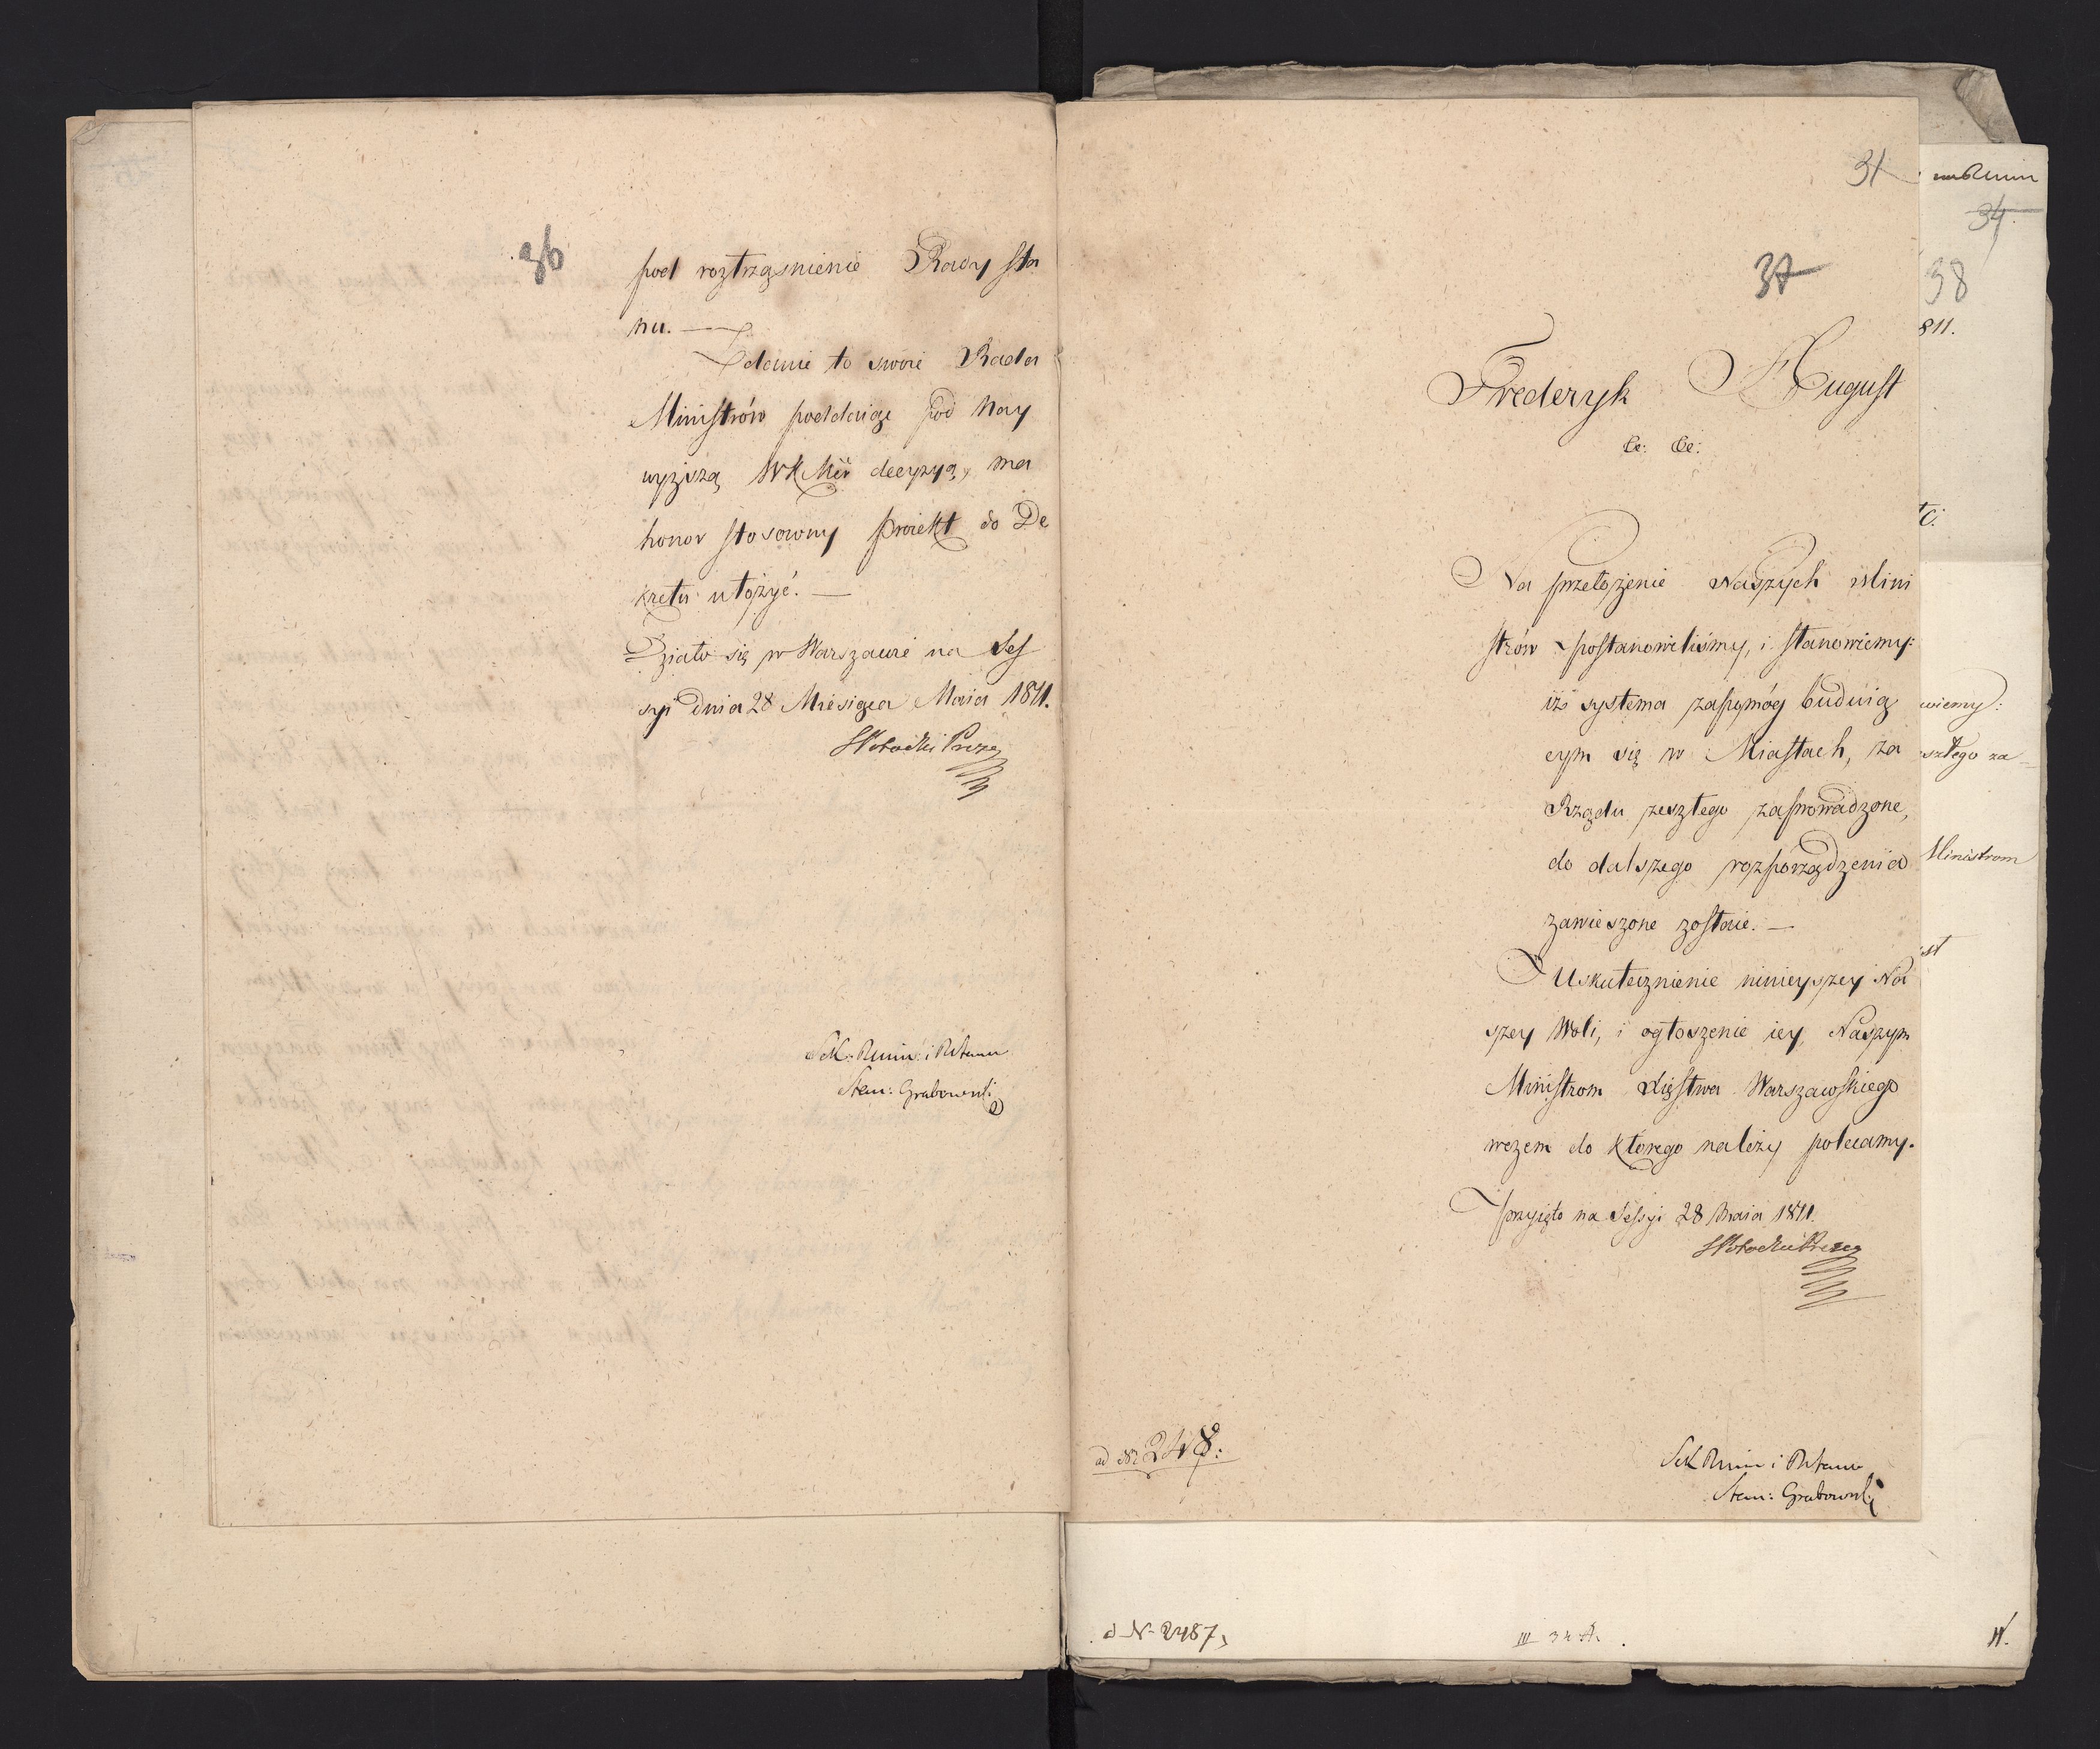 36
pod roztrząsnienie Rady Sta
nu. —
Zdanie to swoie Rada
Ministrów poddaiąc pod Nay
wyższą WKMci decyzyą, ma
honor stosowny proiekt do De
kretu ułożyć. —
Działo się w Warszawie na Ses
syi dnia 28 Miesiąca Maia 1811.
SPotocki Prezes
Sek: RMin: i RStanu
Stan: Grabowski
31
37
Frederyk August
&c: &c:
Na przełożenie Naszych Mini
strów postanowiliśmy, i stanowiemy:
iż systema zapomóg buduią
cym się w Miastach, za
Rządu zeszłego zaprowadzone,
do dalszego rozporządzenia
zawieszone zostaie. —
Uskutecznienie ninieyszey Na
szey Woli, i ogłoszenie iey, Naszym
Ministrom Xięstwa Warszawskiego
wczem do którego należy polecamy.
Przyięto na Sessyi 28 Maia 1811.
SPotocki Prezes
ad Nr 248:
Sek RMin i RStanu
Stan: Grabowski
34.
38
811.
wiemy:
szłego za
Ministrom
st
d N. 2487,
III